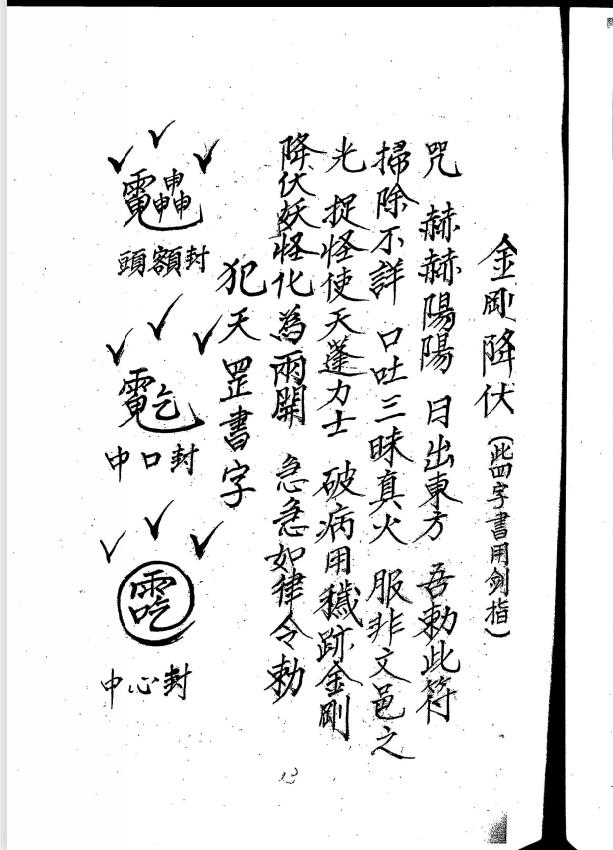 金剛降伏(此四字書用劍指)
咒 赫赫陽陽 日出東方 吾勅此符
掃除不詳 口吐三昧真火 服非文邑之
光 捉怪使天蓬力士 破病用穢跡金剛
降伏妖怪化為雨開 急急如律令勅
犯天罡書字
頭額封
中口封
中心封
12